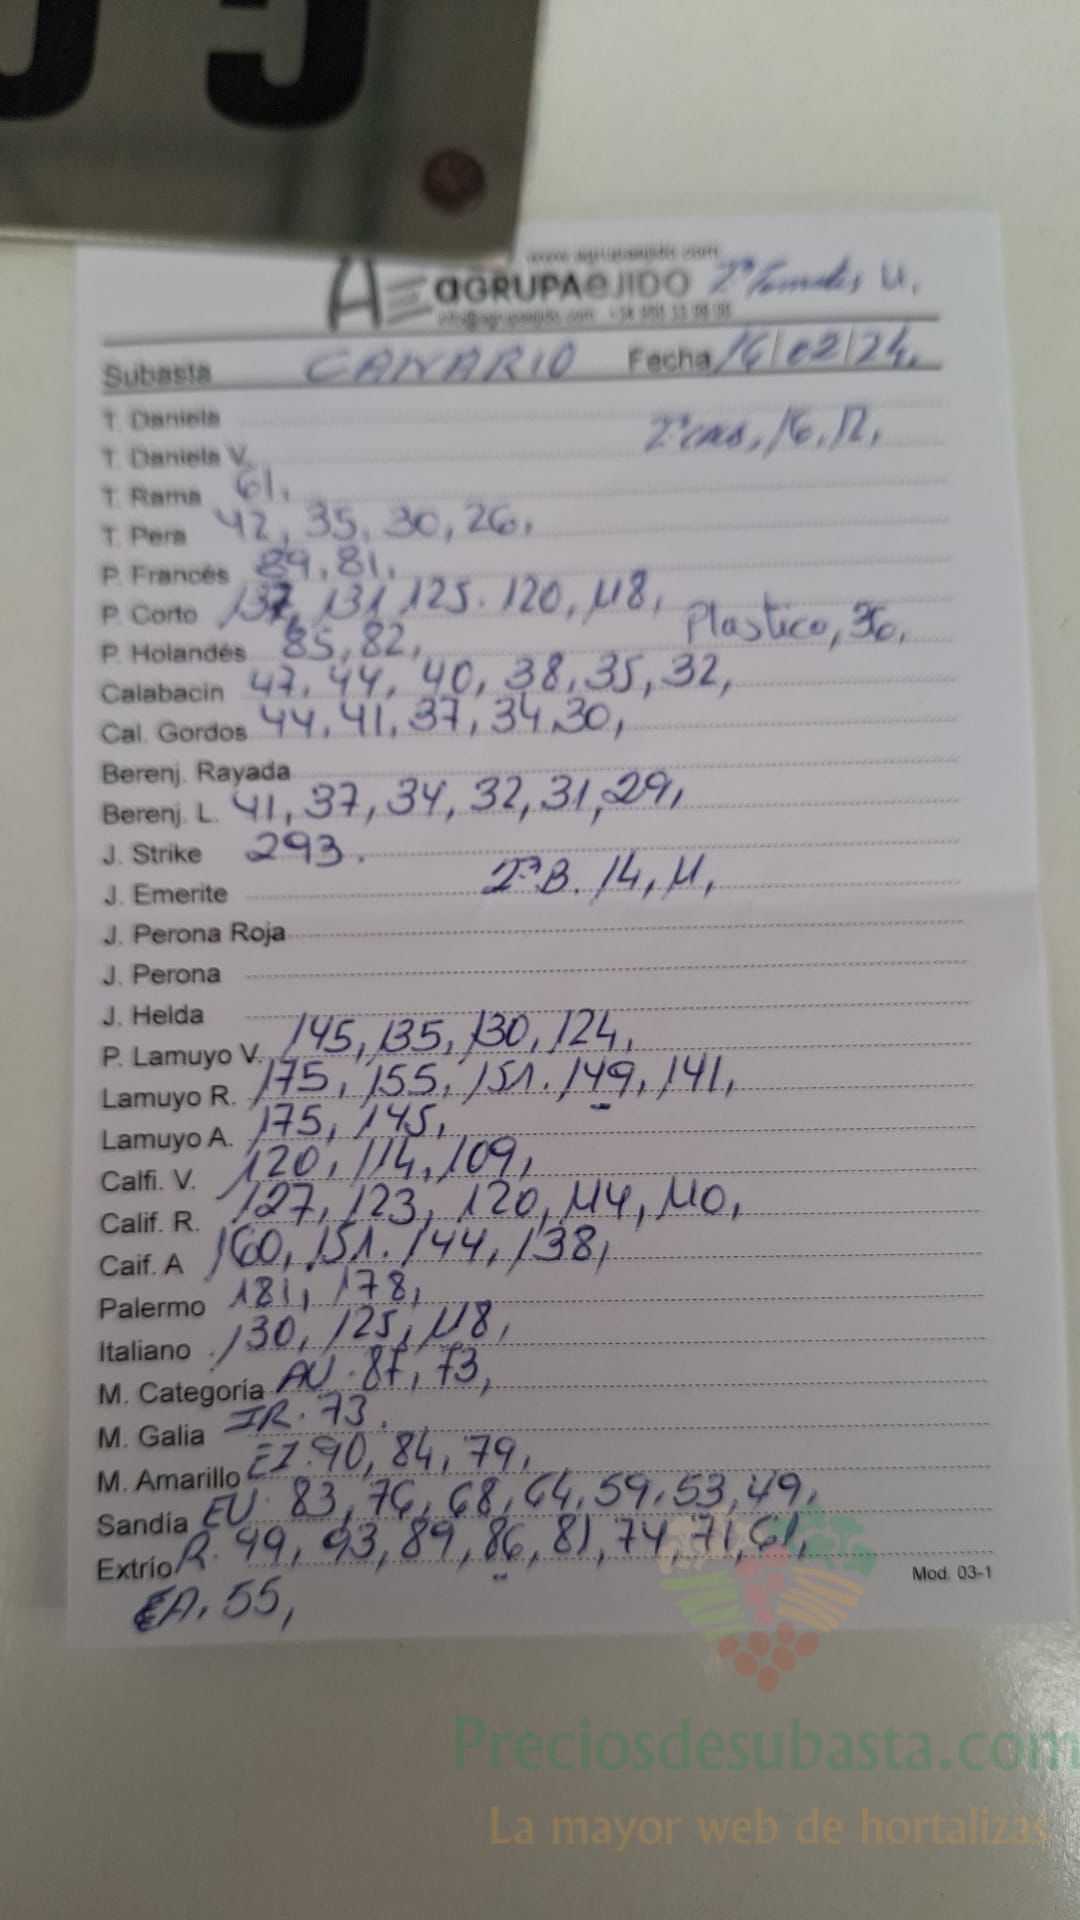 www.agrupaejido.com
AE aGRUPAeJIDO 2ª Tomates 11,
info@agrupaejido.com
Subasta CANARIO Fecha 16/02/24,
T. Daniela
2ª cas, 16, 12,
T. Daniela V.
T. Rama 61,
T. Pera 42, 35, 30, 26,
P. Francés 89, 81,
P. Corto 137, 131, 125. 120, 118,
Plastico, 36,
P. Holandés 85, 82,
Calabacin 47, 44, 40, 38, 35, 32,
Cal. Gordos 44, 41, 37, 34, 30,
Berenj. Rayada
Berenj. L. 41, 37, 34, 32, 31, 29,
J. Strike 293.
J. Emerite 2ª B. 14, 11,
J. Perona Roja
J. Perona
J. Helda
P. Lamuyo V. 145, 135, 130, 124,
Lamuyo R. 175, 155, 151. 149, 141,
Lamuyo A. 175, 145,
Calfi. V. 120, 114, 109,
Calif. R. 127, 123, 120, 114, 110,
Caif. A 160, 151. 144, 138,
Palermo 181, 178,
Italiano 130, 125, 118,
M. Categoría AU. 87, 73,
M. Galia IR. 73.
M. Amarillo EI. 90, 84, 79,
Sandía EU. 83, 76, 68, 64, 59, 53, 49,
Extrio R. 99, 93, 89, 86, 81, 74, 71, 61,
Mod. 03-1
EA. 55,
Preciosdesubasta.com
La mayor web de hortalizas